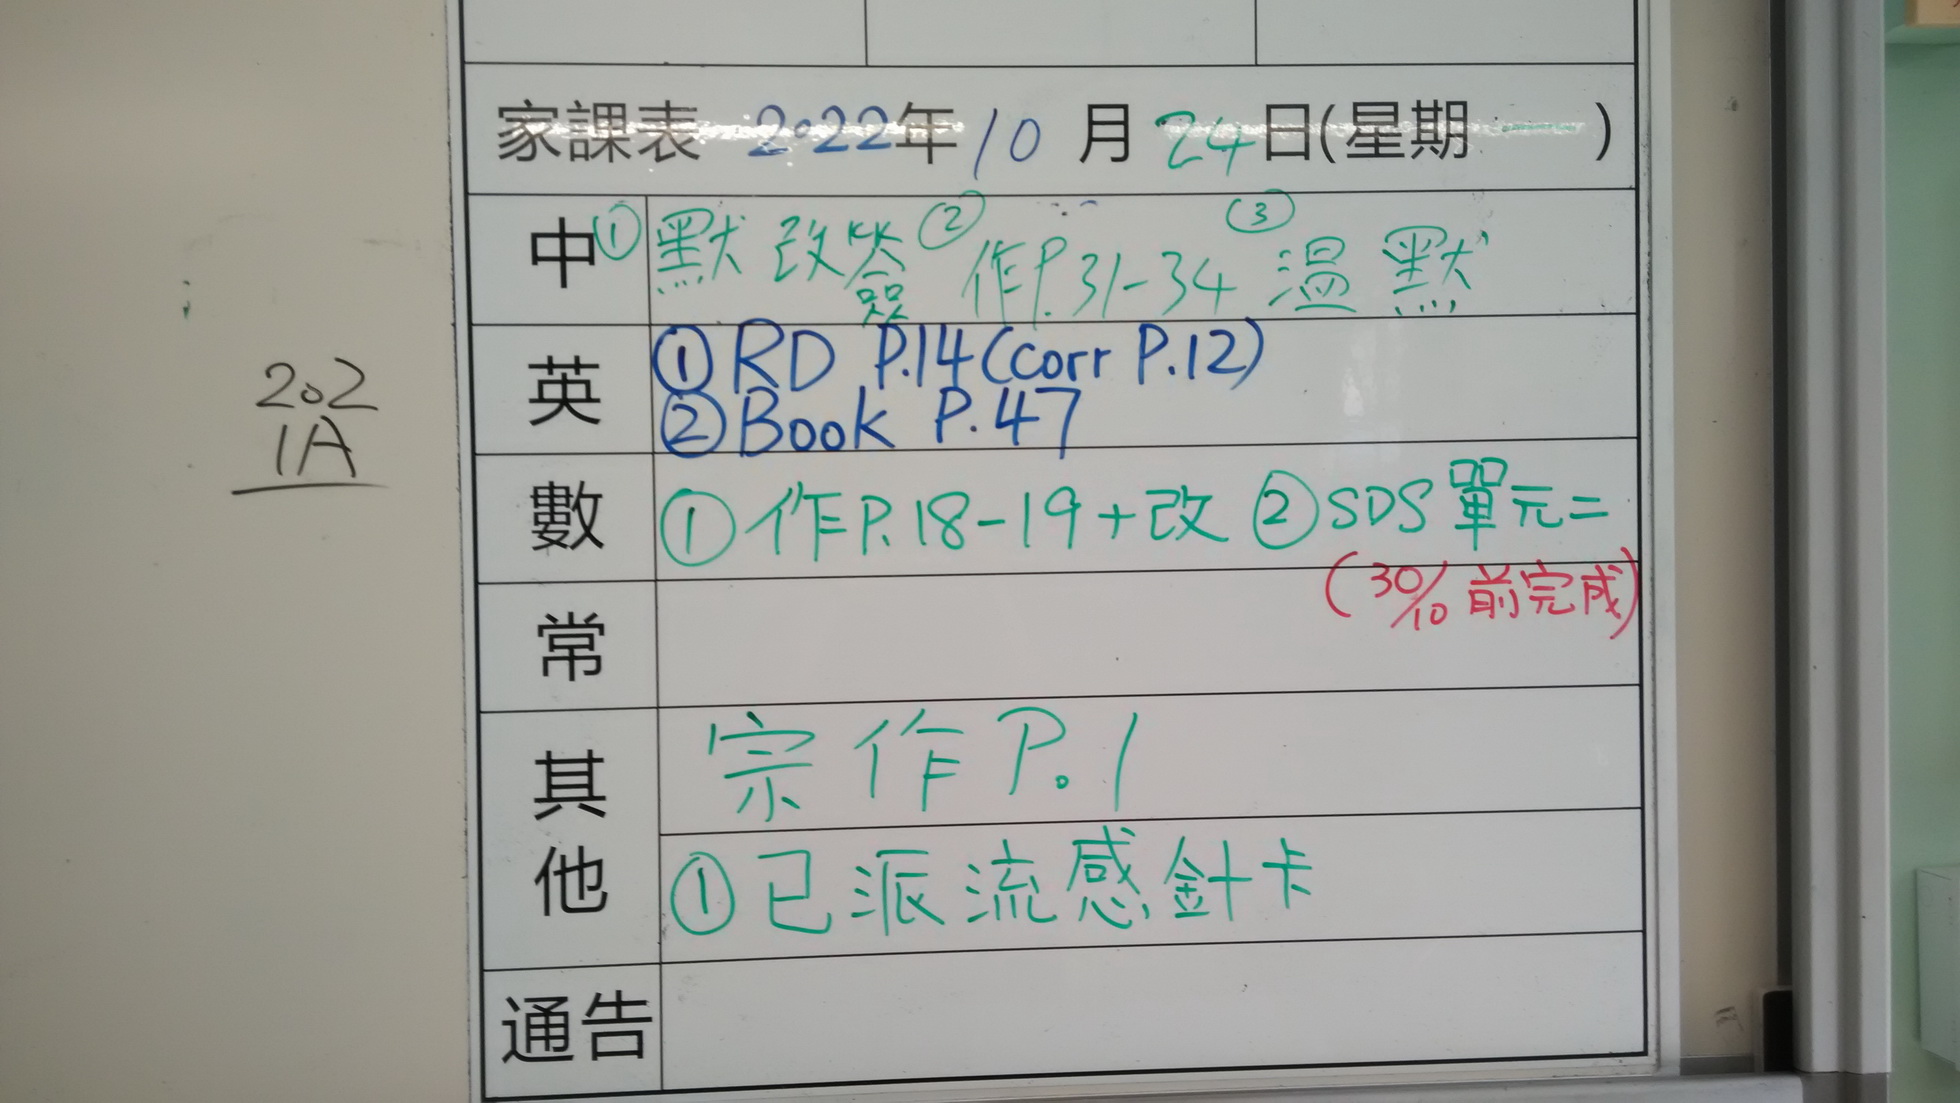 家課表 2022年10月24日(星期一)
中 ①默改簽 ②作P.31-34 ③溫默
英 ①RD P.14(corr P.12)
②Book P.47
202
1A
數 ①作P.18-19+改 ②SDS單元二
(30/10前完成)
常
其他 宗作P.1
①已派流感針卡
通告